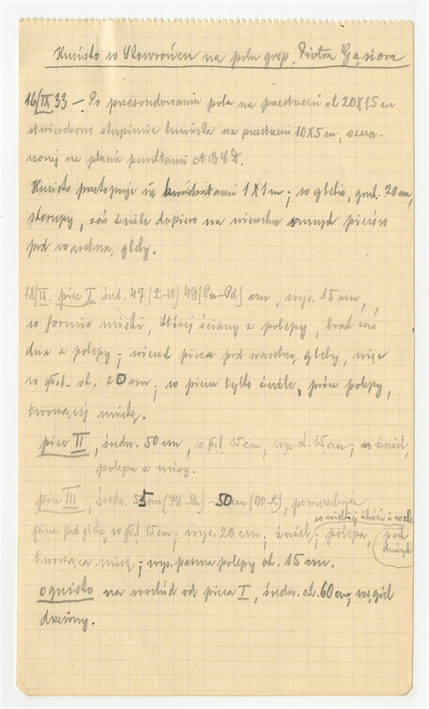 Kmisko w Skowrońcu na polu gosp. Piotra Gąsiora
16/IX 33 – Po przesondowaniu pola na przestrzeni ok 20X15 m
stwierdzono skupienie na przestrzeni 10X5 m, ozna-
czonej na planie punktami A B C D.
przekopuje się kwadratami 1X1 m; w glebie, grub. 20 cm,
skorupy, zaś żużle dopiero na wierzchu pieców
pod warstwą gleby.
18/IX. piec I śred. 47 (Z-W) 49 (Pn-Pd) cm, wys. 15 cm,
w formie miski, której ściany z polepy, brak zaś
dna z polepy; wierzch pieca pod warstwą gleby, więc
w gł. ok. 20 cm; w piecu tylko żużle, prócz polepy,
tworzącej miskę.
piec II, średn. 50 cm, w gł. 15 cm, wys. ok. 15 cm; żużel,
polepa z misy.
piec III, średn. 55 cm (Pd-Pn) – 50 cm (W-Z), powierzchnia
pieca pod glebą w gł. 15 cm; wys. 20 cm; żużel; polepa
w wielkiej ilości
tworząca misę; wys. pasma polepy ok. 15 cm.
ognisko na wschód od pieca I, średn. ok. 60 cm; węgiel
drzewny.